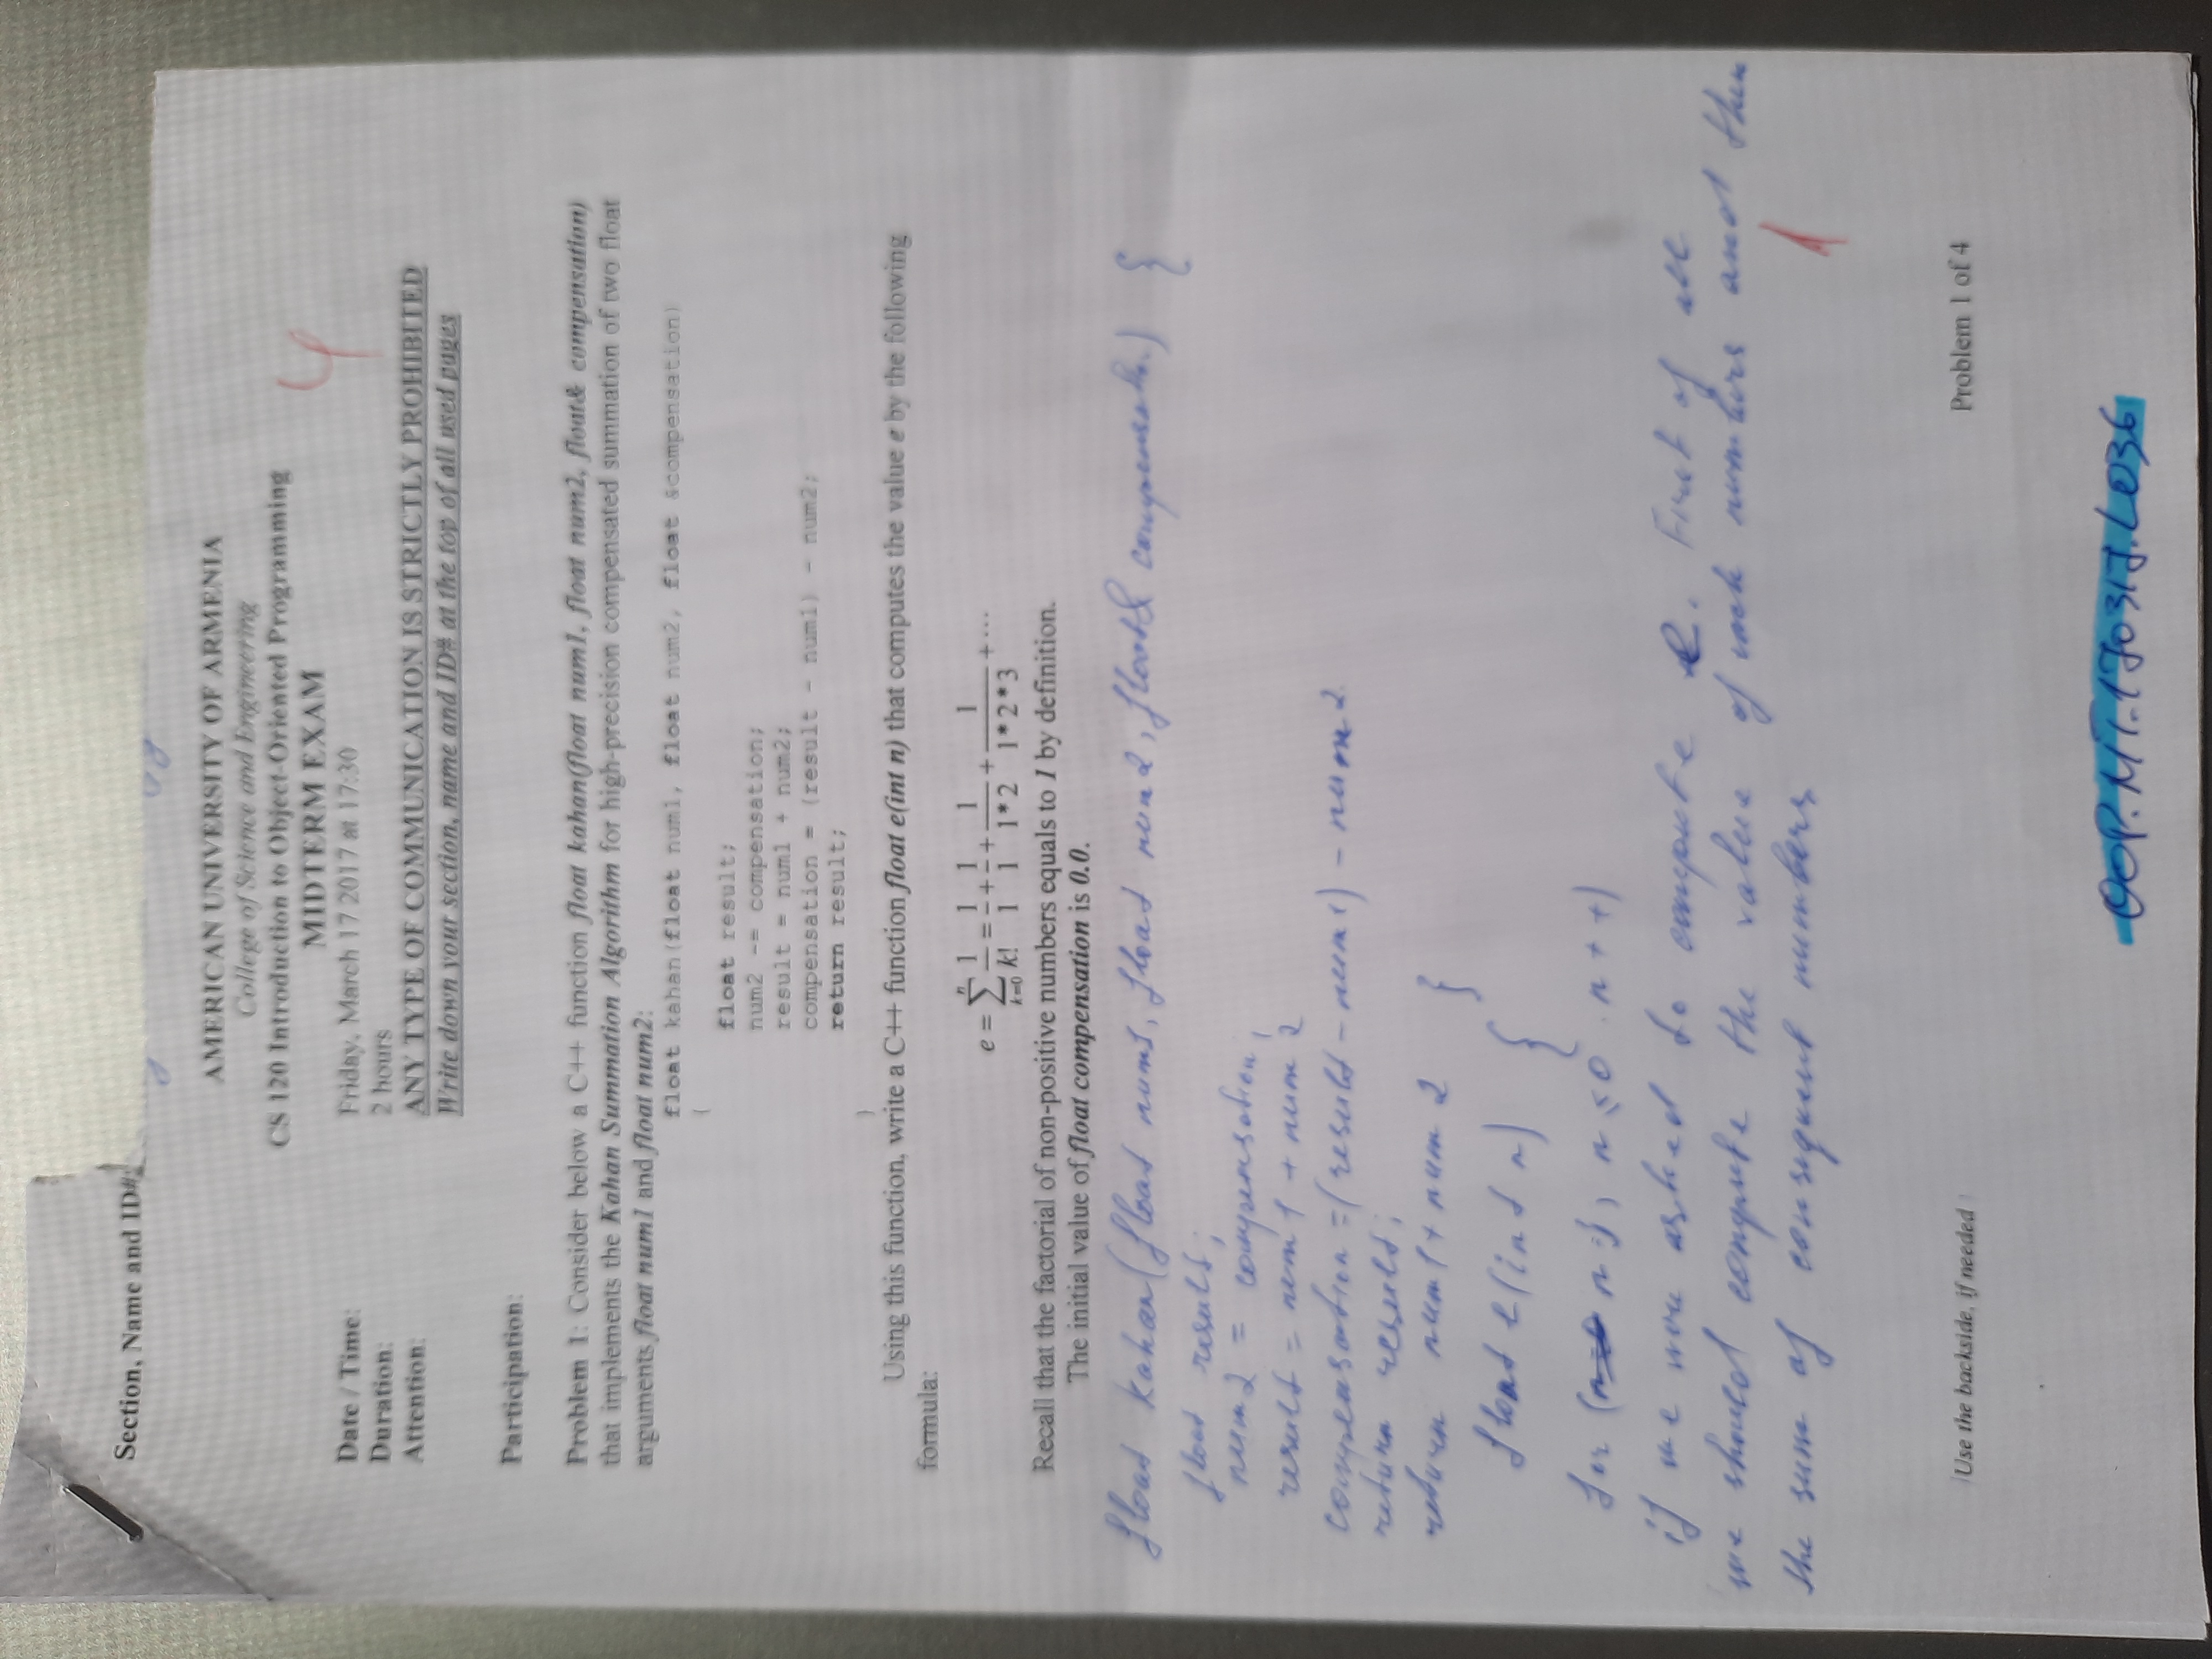 Section, Name and ID#:
AMERICAN UNIVERSITY OF ARMENIA
College of Science and Engineering
CS 120 Introduction to Object-Oriented Programming
MIDTERM EXAM
4
Date / Time: Friday, March 17 2017 at 17:30
Duration: 2 hours
Attention: ANY TYPE OF COMMUNICATION IS STRICTLY PROHIBITED
Write down your section, name and ID# at the top of all used pages
Participation:
Problem 1: Consider below a C++ function float kahan(float num1, float num2, float& compensation)
that implements the Kahan Summation Algorithm for high-precision compensated summation of two float
arguments float num1 and float num2:
float kahan(float num1, float num2, float &compensation)
{
float result;
num2 -= compensation;
result = num1 + num2;
compensation = (result - num1) - num2;
return result;
}
Using this function, write a C++ function float e(int n) that computes the value e by the following
formula:
e = ∑ₖ₌₀ⁿ 1/k! = 1/1 + 1/1 + 1/1*2 + 1/1*2*3 + ⋯
Recall that the factorial of non-positive numbers equals to 1 by definition.
The initial value of float compensation is 0.0.
float kahan(float num1, float num2, float& ) {
float result;
num2 = compensation,
result = num1 + num2
compensation = (result - num1) - num2.
return result;
return num1 + num2 }
float e(int n) {
for ( n ≤ 0 n++)
if we asked to compute e. First of all
we should compute the value of each numbers and then
the sum of consequent numbers
1
Use the backside, if needed
Problem 1 of 4
OOP.MT.170317.L036